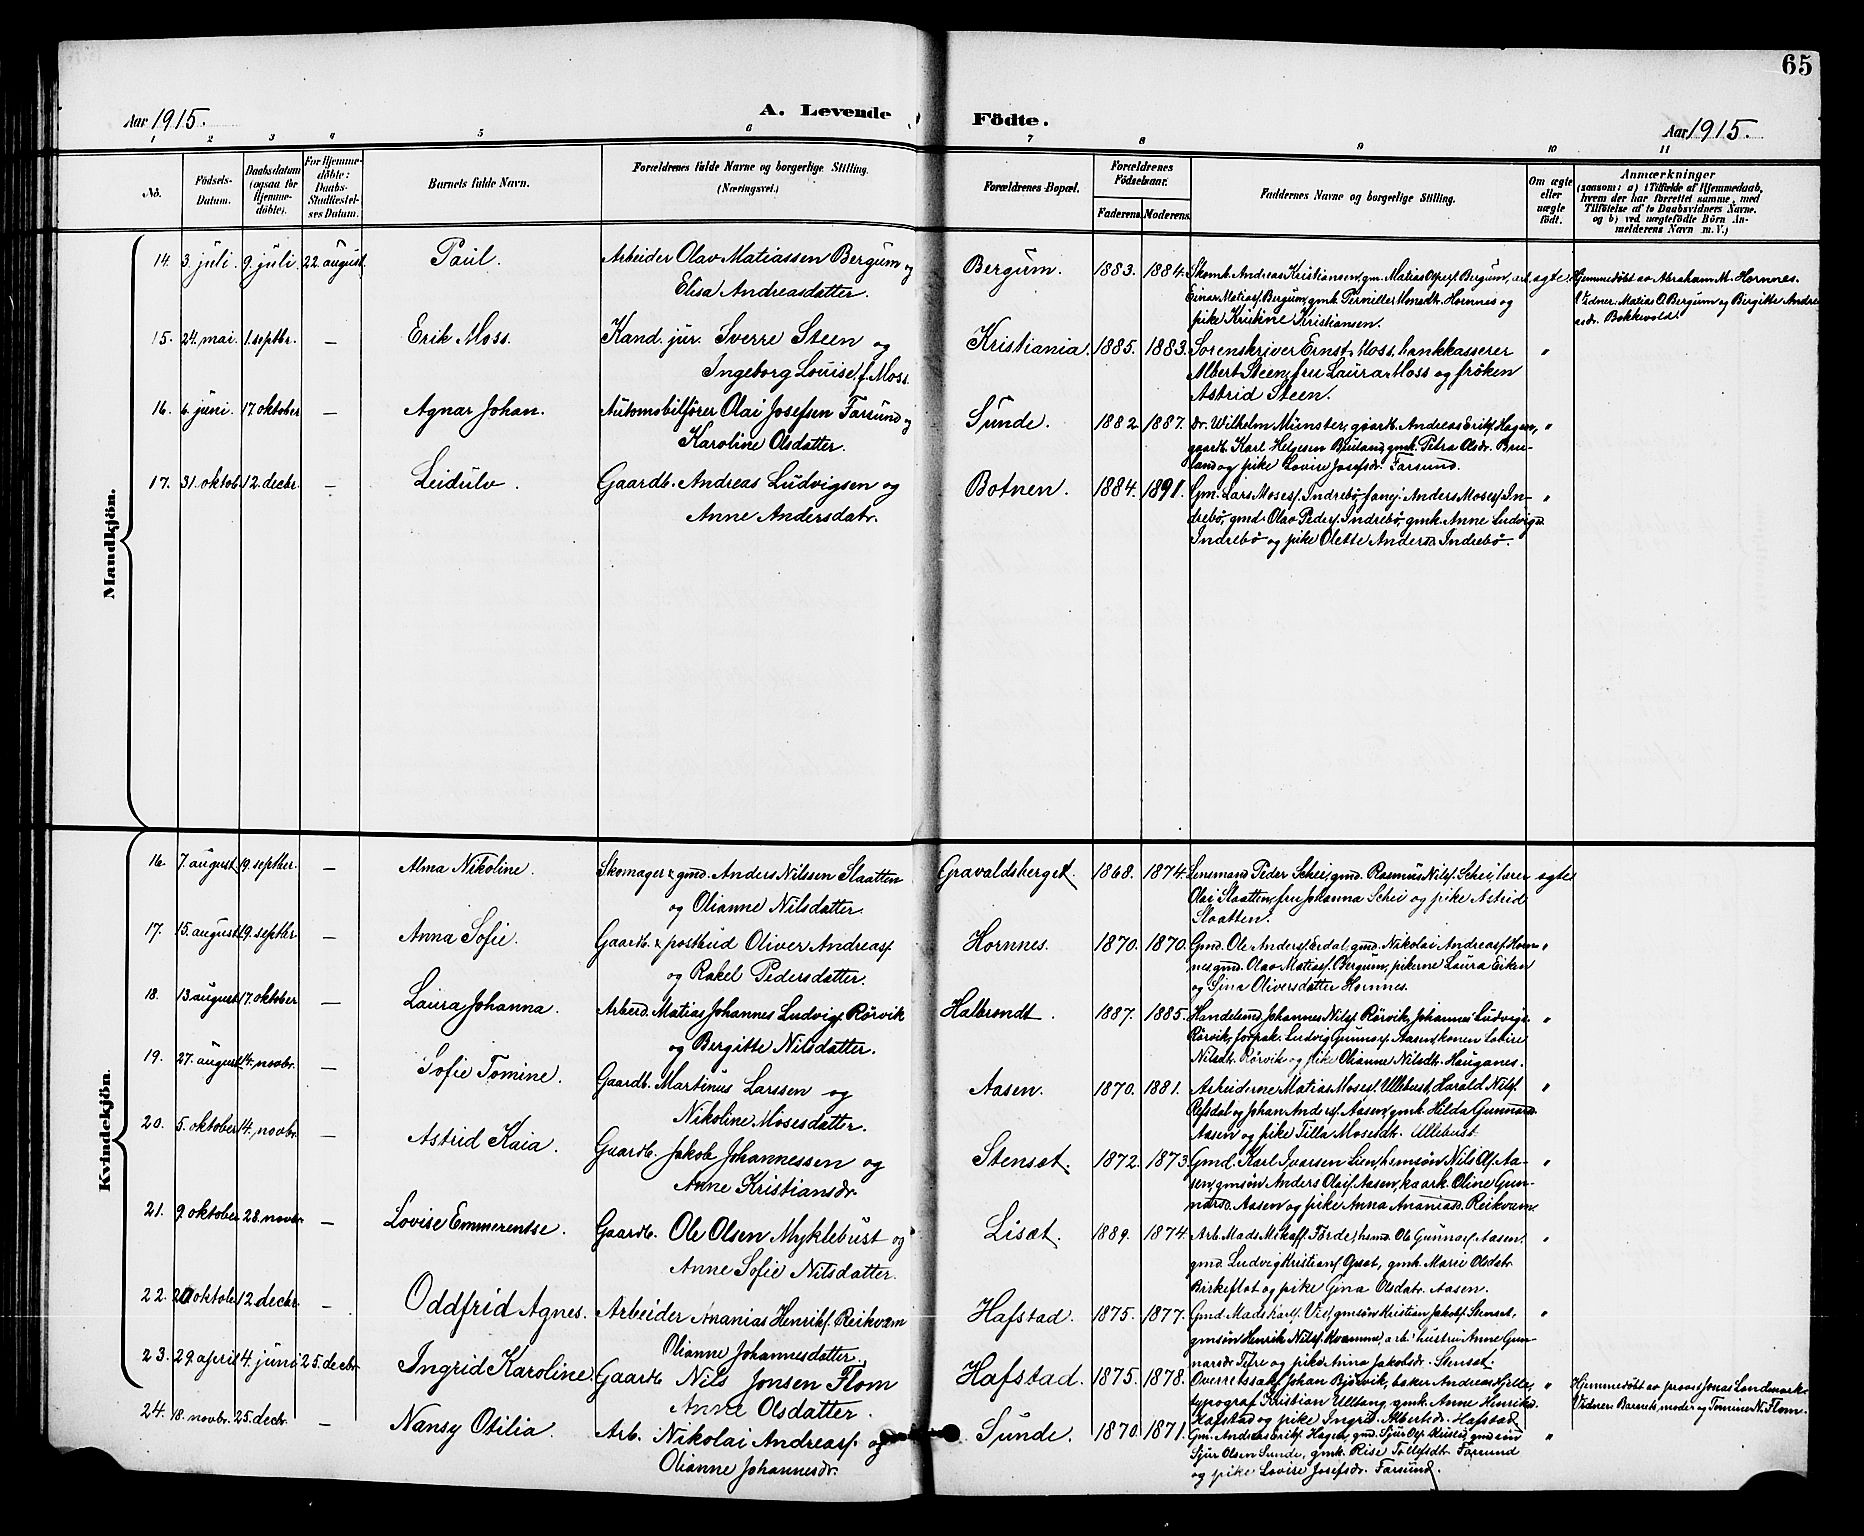 65
Aar 1915.
A. Levende Födte.
Aar 1915.
1 2 3 4 5 6 7 8 9 10 11
No.
Födsels-Datum.
Daabsdatum (ogsaa for Hjemmedöbte).
For Hjemmedöbte: Daabs-Stadfæstelses Datum.
Barnets fulde Navn.
Forældrenes fulde Navne og borgerlige Stilling. (Næringsvei.)
Forældrenes Bopæl.
Forældrenes Födselsaar.
Faderens. Moderens.
Faddernes Navne og borgerlige Stilling.
Om ægte eller uægte födt.
Anmærkninger
(saasom: a) i Tilfælde af Hjemmedaab, hvem der har forrettet samme, med Tilföielse af to Daabsvidners Navne. og b) ved uægtefödte Börn Anmelderens Navn m. V.)
Mandkjön.
14. 3. juli. 9. juli. 22. august. Paul. Arbeider Olav Matiassen Bergum og
Elisa Andreasdatter.
Bergum. 1883. 1884. Skomk. Andreas Kristiansen, gm. Matias Olsen Bergum, ægte.
Einar Matiasf. Bergum, gmk. Pernille Monsdt. Hornnes og
pike Kristine Kristiansen.
Hjemmedöbt av Abraham M. Hornnes.
Vidner: Matias O. Bergum og Bergitte Andre
asdr. Bokkevold.
15. 24. mai. 1. septbr. — Erik Moss. Kand. jur. Sverre Steen og
Ingeborg Louise f. Moss.
Kristiania. 1885. 1883. Sorenskriver Ernst Moss, bankkasserer
Albert Steen, fru Laura Moss og fröken
Astrid Steen. "
16. 6. juni. 17. oktober — Agnar Johan. Automobilförer Olai Josefsen Farsund og
Karoline Olsdatter.
Sunde. 1882. 1887. Dr. Wilhelm Münster, gaardb. Andreas Eriks. Hagen,
gaardb. Karl Helgesen Bruland, gmk. Petra Olsdr. Bru-
land og pike Lovise Josefsdr. Farsund. "
17. 31. oktob. 12. decbr. — Leidulv. Gaardb. Andreas Ludvigsen og
Anne Andersdatr.
Botnen. 1884. 1891. Gm. Lars Mosesf. Indrebö, fanej. Anders Mosesf. In-
drebö, gmd. Olav Pedersf. Indrebö, gmk. Anne Ludvigsd.
Indrebö og pike Olette Andersd. Indrebö. "
Kvindekjön.
16. 7. august. 19. septber. — Alma Nikoline. Skomager & gmd. Anders Nilssen Slaatten
og Olianne Nilsdatter.
Gravaldsberget. 1868. 1874. Lensmand Peder Schei, gmd. Rasmus Nilsf. Schei, lærer ægte
Olai Slaatten, fru Johanna Schei og pike Astrid
Slaatten.
17. 15. august. 19. septbr. — Anna Sofie. Gaardb. & postbud Oliver Andreasf.
og Rakel Pedersdatter.
Hornnes. 1870. 1870. Gmd. Ole Andersf. Erdal, gmd. Nikolai Andreasf. Horn-
nes, gmd. Olav Matiasf. Bergum, pikerne Laura Eiken
og Sina Oliversdatter Hornnes. "
18. 13. august. 17. oktober — Laura Johanna. Arbeid. Matias Johannes Ludvigs. Rörvik
og Bergitte Nilsdatter.
Halbrendt. 1887. 1885. Handelsmd. Johannes Nilsf. Rörvik, Johannes Ludvigs.
Rörvik, forpak. Ludvig Gunnarsf. Aasen, konen Lovise
Nilsdt. Rörvik og pike Olianne Nilsdt. Hauganes. "
19. 27. august. 14. novbr. — Sofie Tomine. Gaardb. Martinus Larssen og
Nikoline Mosesdatter.
Aasen. 1870. 1881. Arbeiderne Matias Mosesf. Ullebust, Harald Nilsf.
Refsdal og Johan Andersf. Aasen, gmk. Hilda Gunnarsd.
Aasen og pike Tilla Mosesdt. Ullebust. "
20. 5. oktober. 14. novbr. — Astrid Kaia. Gaardb. Jakob Johannessen og
Anne Kristiansdr.
Stensæt. 1872. 1873. Gmd. Karl Ivarsen Lien, hsmsön Nils Olsf. Aa-
sen, gmsön Anders Olaif. Aasen, ka ark. Oline Gun-
narsd. Aasen og pike Anna Ananiasd. Reikvam. "
21. 9. oktober 28. novbr. — Lovise Emmerentse. Gaardb. Ole Olsen Myklebust og
Anne Sofie Nilsdatter.
Lisæt. 1889. 1874. Arb. Mads Mikaelf. Förde, hsmd. Ole Gunnarsf. Aasen.
gmd. Ludvig Kristiansf. Gsæt, gmk. Marie Olsdtr.
Birkeflot og pike Gina Olsdatr. Aasen. "
22. 20. oktober 12. decbr. — Oddfrid Agnes. Arbeider Ananias Henriks. Reikvam
Olianne Johannesdatter.
Hafstad. 1875. 1877. Gmd. Mads Karlf. Vie, gmsön Kristian Jakobsf. Stensæt,
gmsön Henrik Nilsf. Kvamme, arb. hustru Anne Gun-
narsdr. Tefre og pike Anna Jakobsdr. Stensæt. "
23. 29. april. 4. juni. 25. decbr. Ingrid Karoline. Gaardb. Nils Jonsen Flom
Anna Olsdatter.
Hafstad. 1875. 1878. Overretssakf. Johan Björvik, baker Andreas Hjelle,
typograf Kristian Ulltang, gmk. Anne Henriksd.
Hafstad og pike Ingrid Albertsdr. Hafstad. "
Hjemmedöbt av provst Jonas Landmark.
Vidner: Barnets moder og Tomine N. Flom.
24. 18. novbr. 25. decbr. — Nansy Otilia. Arb. Nikolai Andreasf. og
Olianne Johannesdr.
Sunde. 1870. 1871. Gm. Andreas Eriksf. Hagen, gmd. Sjur Olsf. Kusle, gmd.
Sjur Olsen Sunde, gmk. Rise Tollefsdt. Farsund
og pike Lovise Josefsdr. Farsund. "